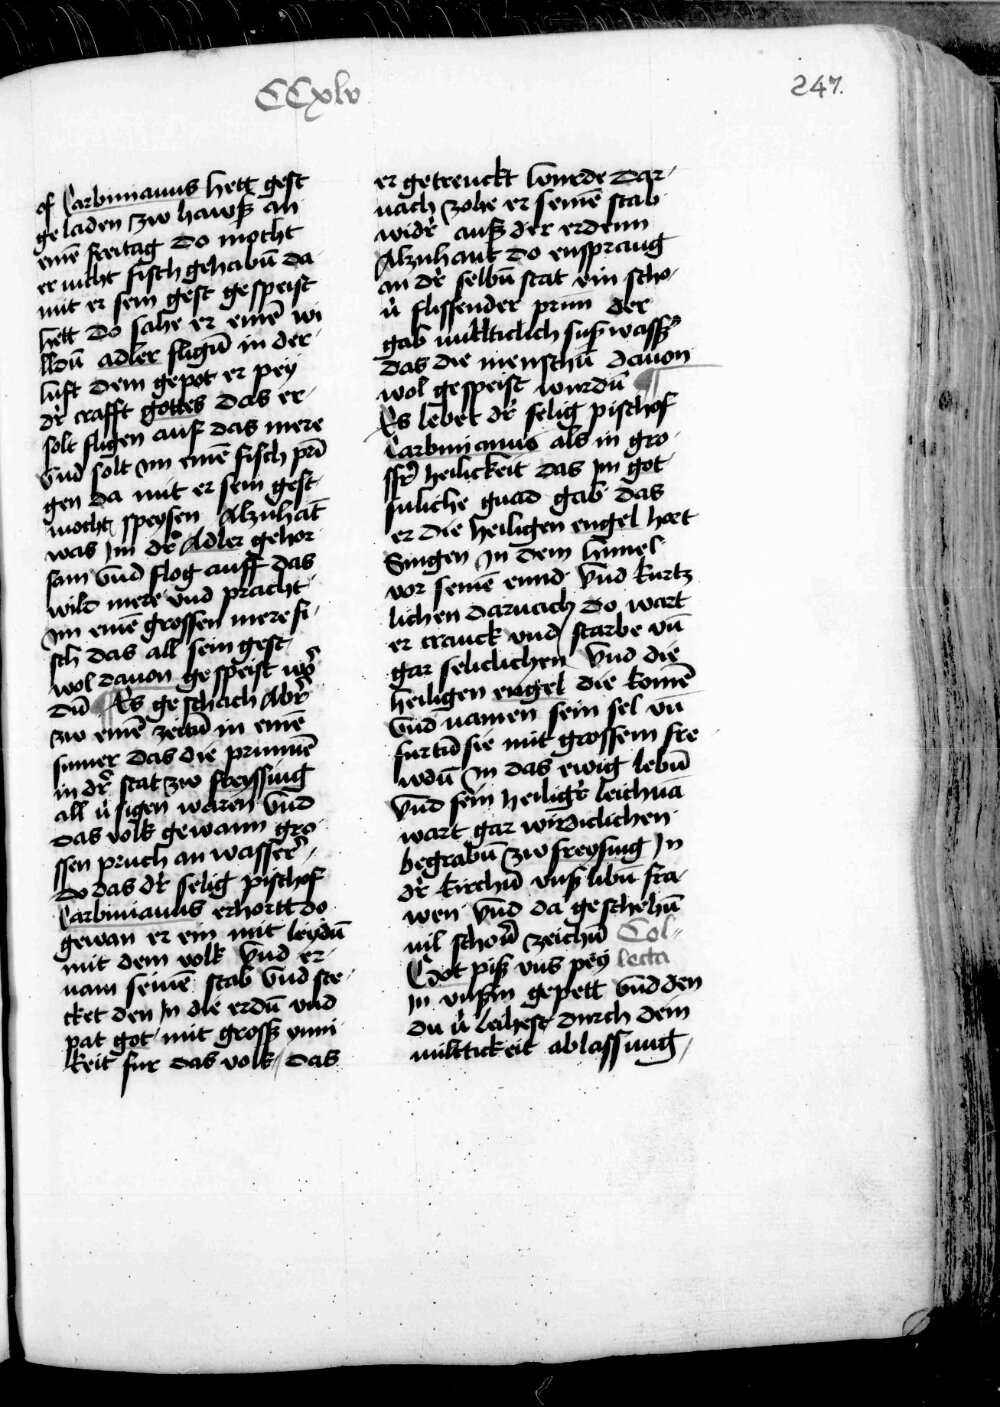 CCxlv
247.
of Carbinianus hett gest
geladen zw hawß an
einē freitag do mocht
er nicht fisch gehabn̄ da
mit er sein gest gespeist
hett do sahe er einē wi
lldn̄ adler flign̄ in der
luft dem gepot er pey
dr̄ crafft gottes das er
solt fligen auf das mere
vnd solt im einē fisch prī
gen da mit er sein gest
mocht speysen Alzuhāt
was Im dr̄ Adler gehor
sam vnd flog auff das
wild mere vnd pracht
im einē grossen mere fi
sch das all sein gest
wol dauon gespeist wr̄
dn̄ Es geschach Abr̄
zw einē zeitn̄ in einē
sumer das die prunnē
in dr̄ stat zw freyssing
all v̄sigen waren vnd
das volk gewann gro
ssen pruch an wasser
do das dr̄ selig pischof
Carbinianus erhortt do
gewan er ein mit leydn̄
mit dem volk vnd er
nam seinē stab vnd ste
cket den In die erdn̄ vnd
pat got mit gross ynni
keit fur das volk das
er getrenckt wurde Dar
nach zohe er seinē stab
widr̄ auß der erdenn
Alzuhant do ensprang
an dr̄ selbn̄ stat ein scho
n̄ flissender prun der
gab milticlich suß wassr̄
das die menschn̄ dauon
wol gespeist wurdn̄
Es lebet dr̄ selig pischof
Carbinianus als in gro
ssr̄ heilickeit das Im got
suliche gnad gab das
er die heiligen engel hort
Singen In dem himel
vor seinē ennd Vnd kurtz
lichen darnach do wart
er kranck vnd starbe vn̄
gar seliclichen Vnd die
heiligen engel die komē
vnd namen sein sel vn̄
furtn̄ sie mit grossem fre
wdn̄ In das ewig lebn̄
Vnd sein heiligr̄ leichnā
wart gar wirdiclichen
begrabn̄ zw freysing In
dr̄ kirchn̄ vnß libn̄ fra
wen vnd da geschehn̄
vil schonr̄ zeichn̄ Col-
Got piß vns pey lecta
In vnßm gepett vnd den
du v̄leihest durch dein
miltickeit ablassung